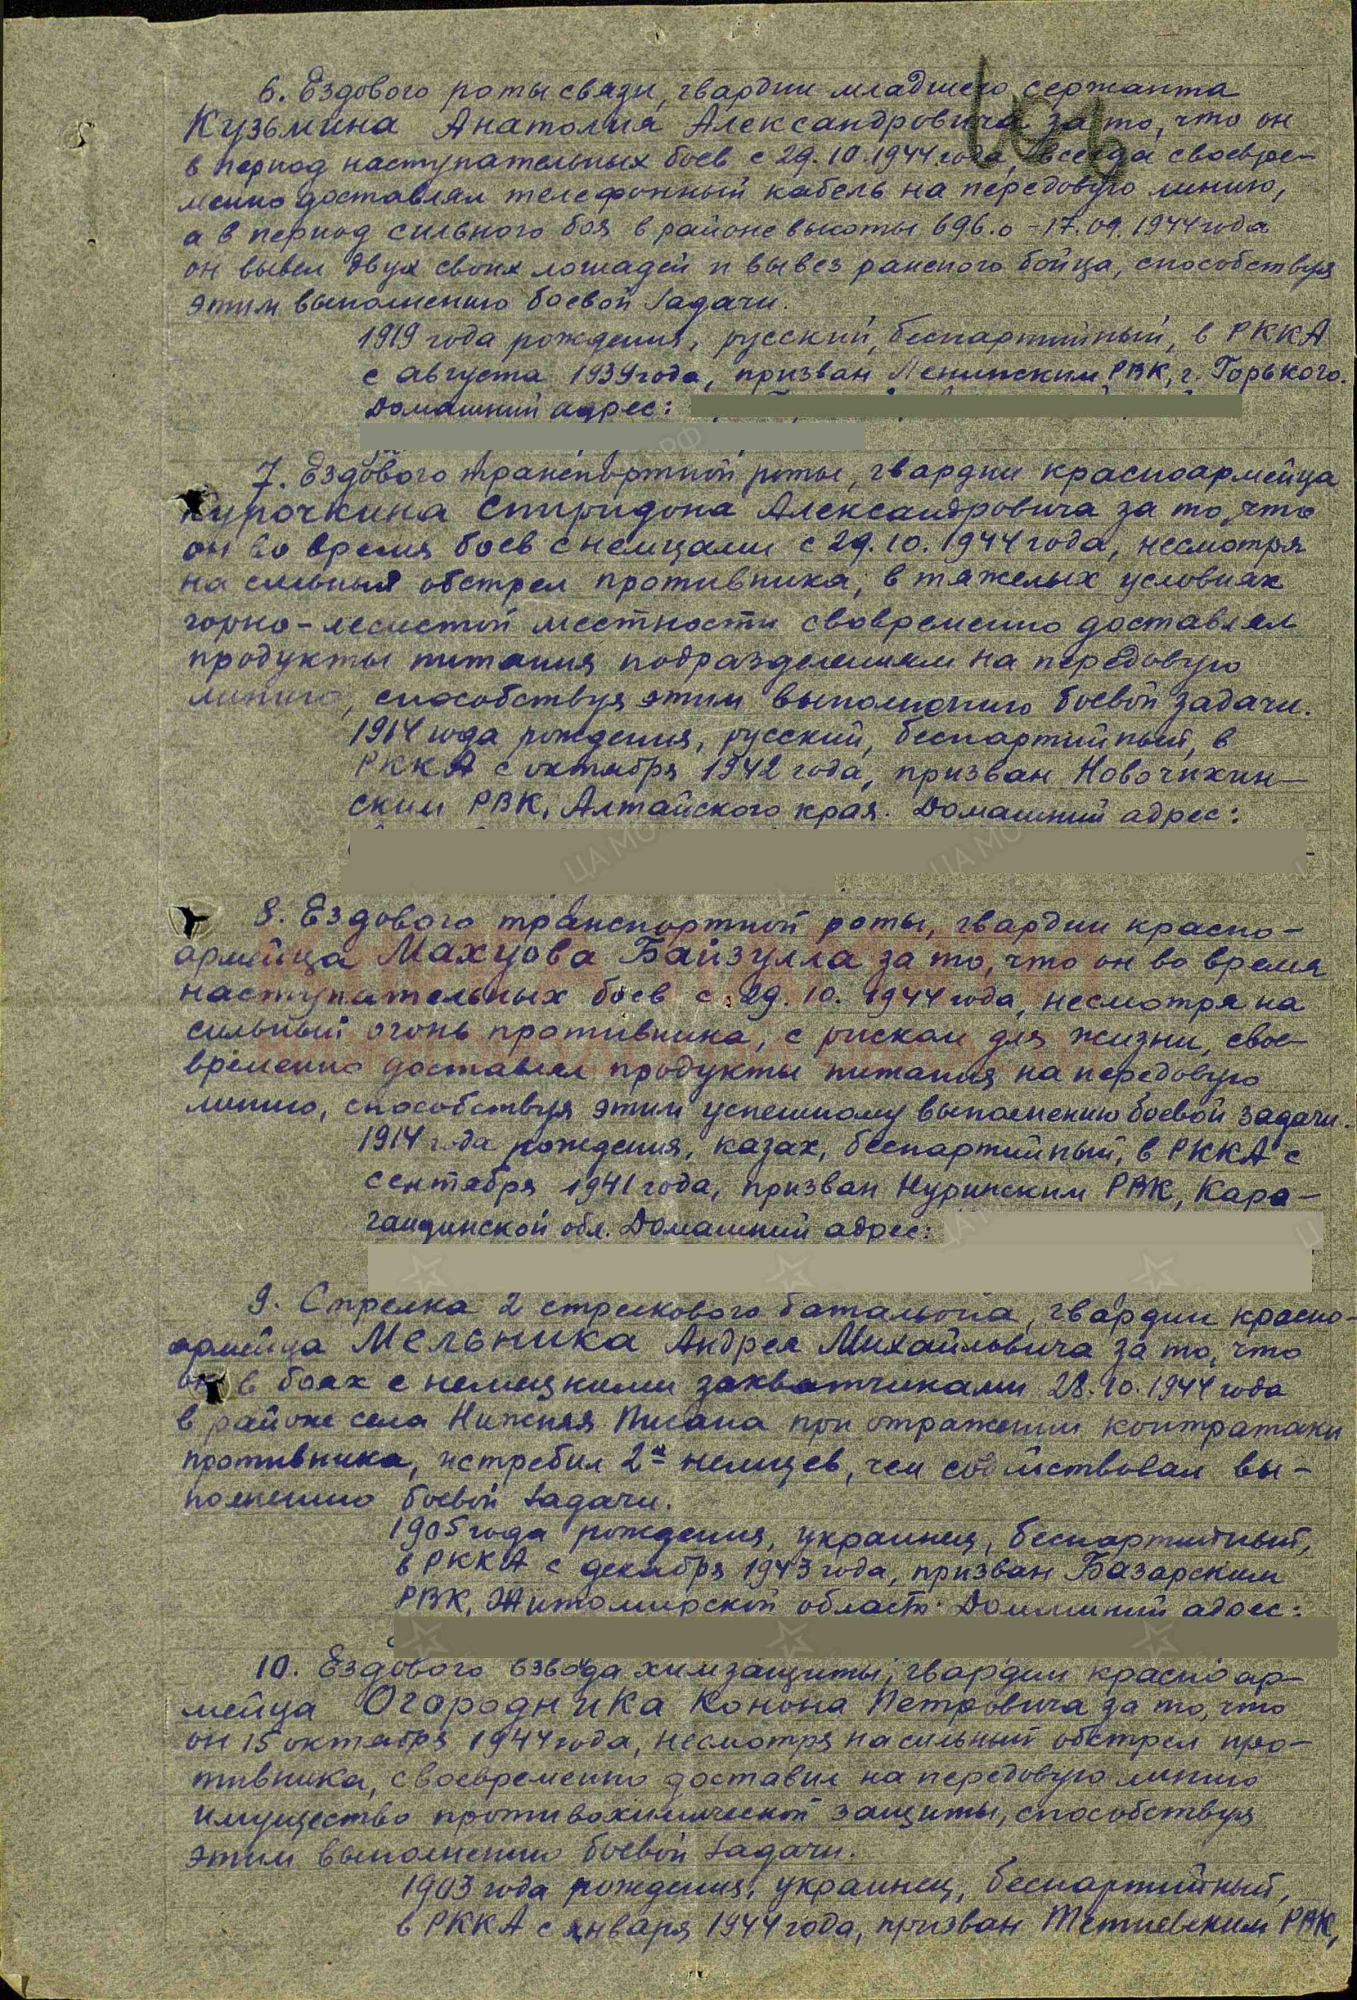 6. Ездового роты связи, гвардии младшего сержанта
Кузьмина Анатолия Александровича за то, что он
в период наступательных боев с 29.10.1944 года, всегда своевре-
менно доставлял телефонный кабель на передовую линию,
а в период сильного боя в районе высоты 696.0 - 17.09.1944 года
он вывел двух своих лошадей и вывез раненого бойца, способствуя
этим выполнению боевой задачи.
1919 года рождения, русский, беспартийный, в РККА
с августа 1939 года, призван Ленинским РВК, г. Горького.
Домашний адрес:
7. Ездового транспортной роты, гвардии красноармейца
Курочкина Спиридона Александровича за то, что
он во время боев с немцами с 29.10.1944 года, несмотря
на сильный обстрел противника, в тяжелых условиях
горно-лесистой местности своевременно доставлял
продукты питания подразделениям на передовую
линию, способствуя этим выполнению боевой задачи.
1914 года рождения, русский, беспартийный, в
РККА с октября 1942 года, призван Новочихин-
ским РВК, Алтайского края. Домашний адрес:
8. Ездового транспортной роты, гвардии красно-
армейца Махуова Байзулла за то, что он во время
наступательных боев с 29.10.1944 года, несмотря на
сильный огонь противника, с риском для жизни, свое-
временно доставлял продукты питания на передовую
линию, способствуя этим успешному выполнению боевой задачи.
1914 года рождения, казах, беспартийный, в РККА с
сентября 1941 года, призван Нуринским РВК, Кара-
гандинской обл. Домашний адрес:
9. Стрелка 2 стрелкового батальона, гвардии красно-
армейца Мельника Андрея Михайловича за то, что
он в боях с немецкими захватчиками 28.10.1944 года
в районе села Нижняя Писана при отражении контратаки
противника, истребил 2х немцев, чем содействовал вы-
полнению боевой задачи.
1905 года рождения, украинец, беспартийный,
в РККА с декабря 1943 года, призван Базарским
РВК, Житомирской область. Домашний адрес:
10. Ездового взвода химзащиты, гвардии красноар-
мейца Огородника Конона Петровича за то, что
он 15 октября 1944 года, несмотря на сильный обстрел про-
тивника, своевременно доставил на передовую линию
имущество противохимической защиты, способствуя
этим выполнению боевой задачи.
1903 года рождения, украинец, беспартийный,
в РККА с января 1944 года, призван Тетиевским РВК,